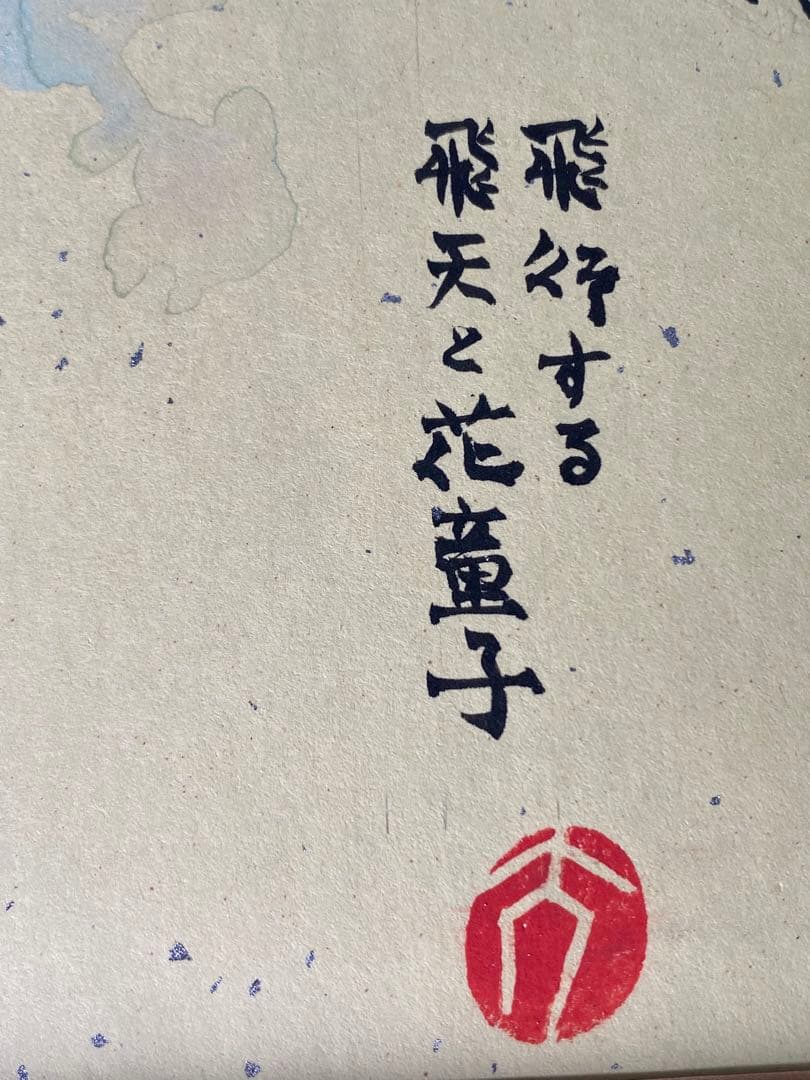 飛行する
飛天と花童子